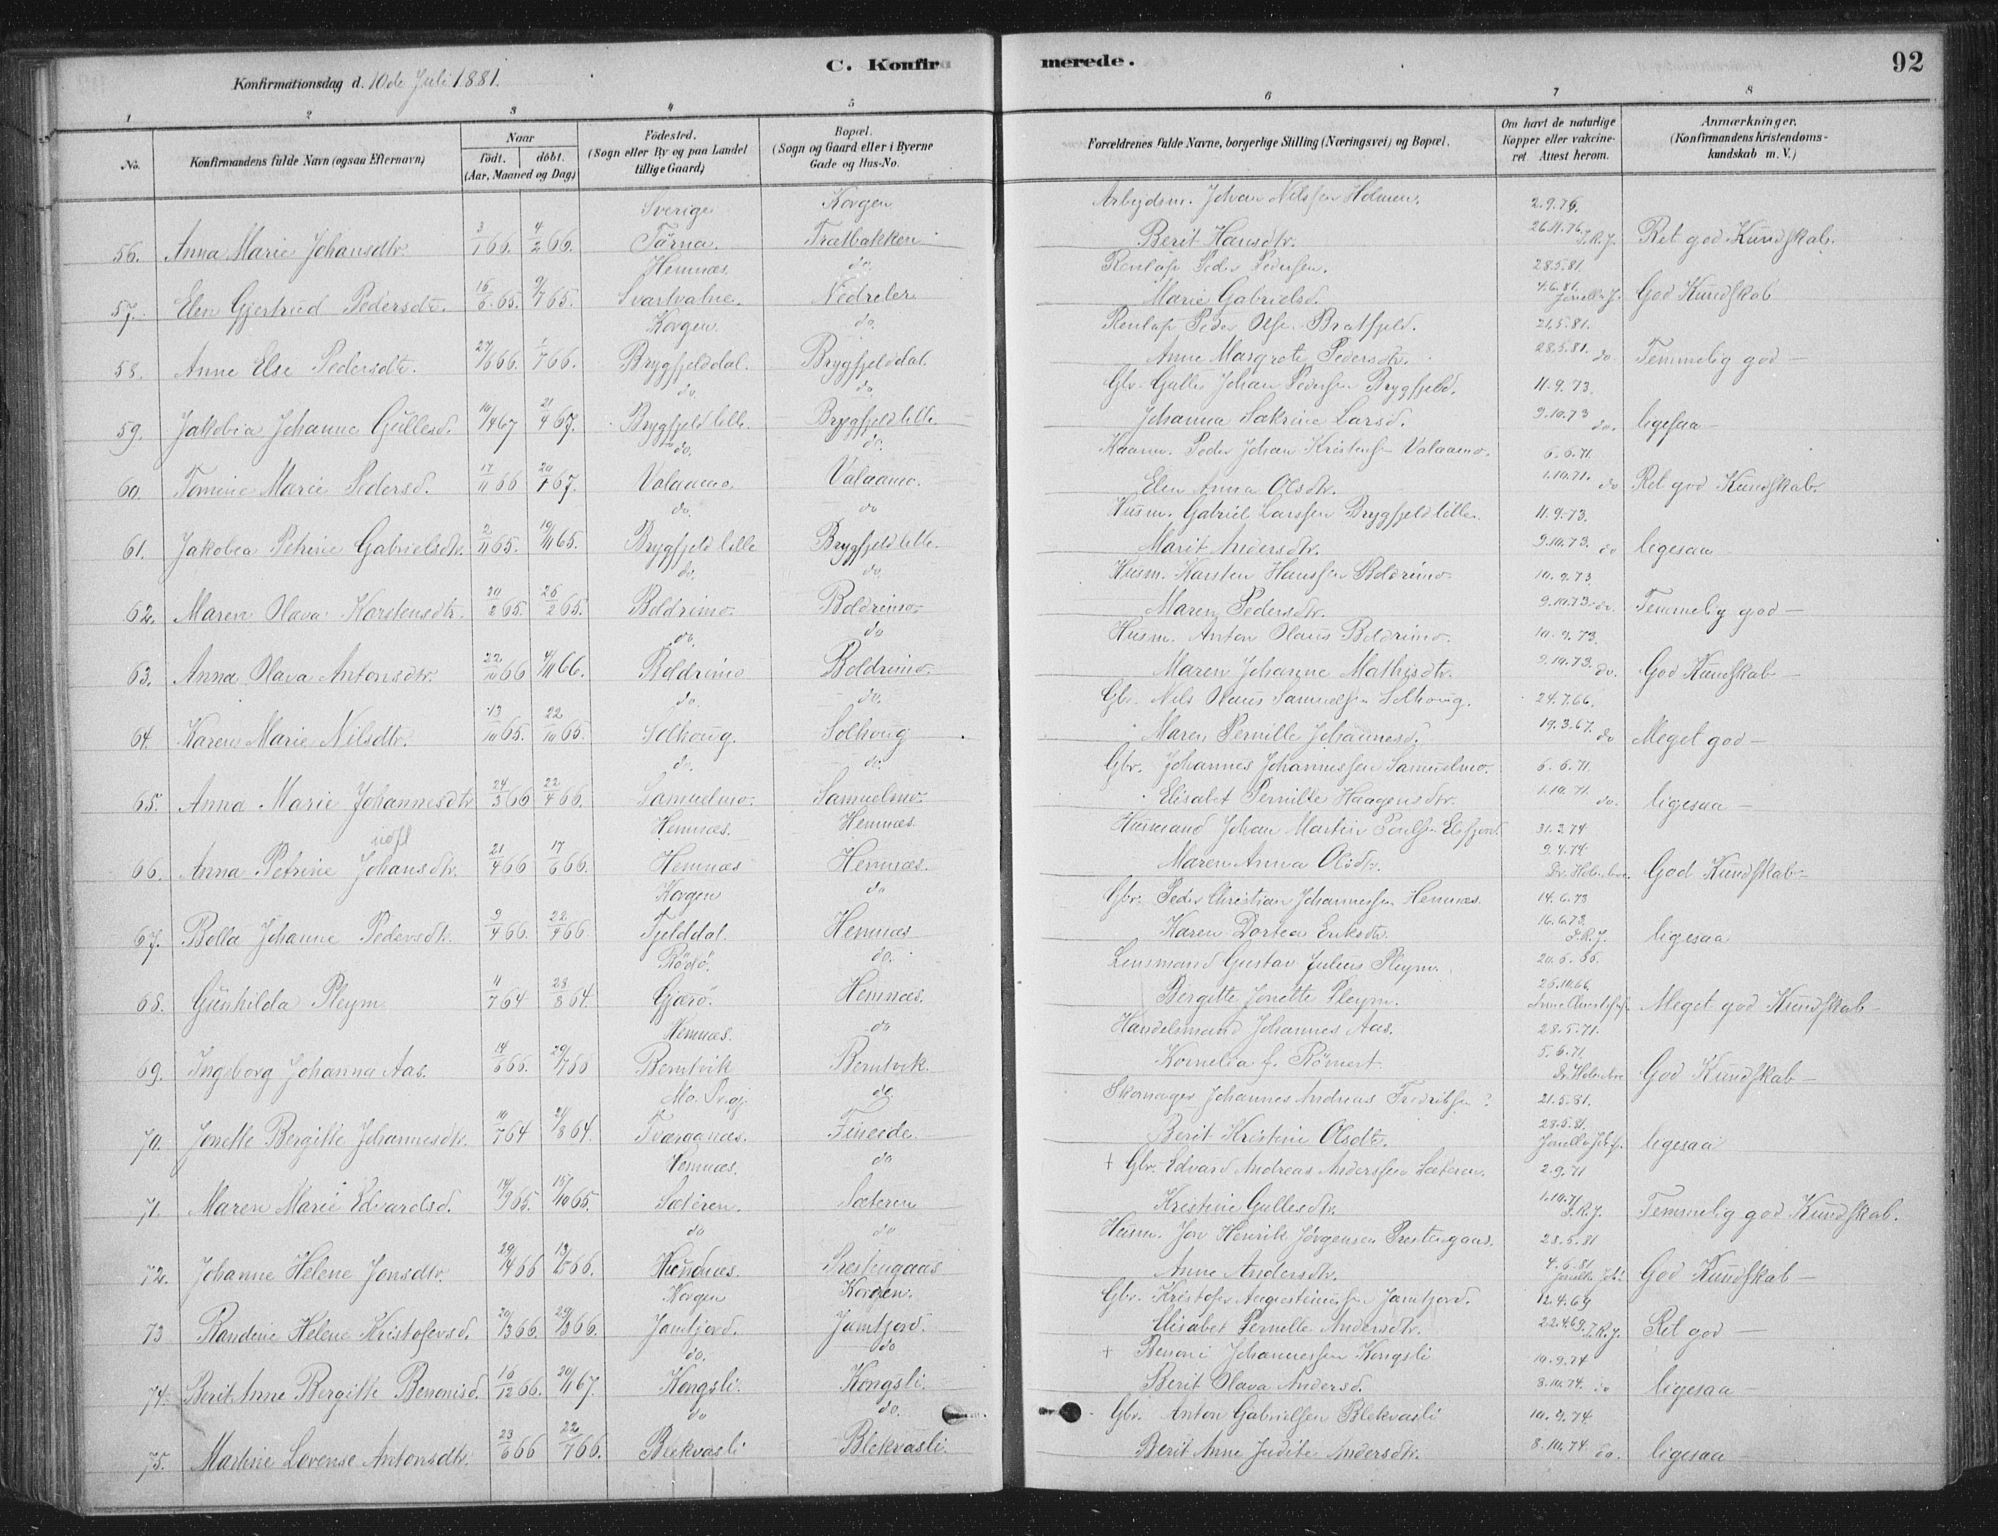 C. Konfirmerede.
92
Konfirmationsdag d. 10de Juli 1881.
1 2 3 4 5 6 7 8
No.
Konfirmandens fulde Navn (ogsaa Efternavn)
Naar født. døbt. (Aar, Maaned og Dag)
Fødested. (Sogn eller By og paa Landet tillige Gaard)
Bopæl. (Sogn og Gaard eller i Byerne Gade og Hus-No.
Forældrenes fulde Navne, borgerlige Stilling (Næringsvei) og Bopæl.
Om havt de naturlige Kopper eller vakcineret Attest herom.
Anmærkninger. (Konfirmandens Kristendomskundskab m. V.)
Sverige Korgen Arbejdsm. Johan Nilssen Holmen. 2.9.76.
56. Anna Marie Johansdtr. 3/1 66. 4/2 66. Tärna. Trætbakken Berit Hansdtr. 26.11.76. J.R.J. Ret god Kundskab.
Hemnæs. do. Peder Pedersen. 28.5.81.
57. Elen Gjertrud Pedersdtr. 15/6 65. 9/7 65. Svartvatne. Nedreler Marie Gabrielsd. 4.6.81. God Kundskab
Korgen. do. Peder Olsen Bratfjeld. 21.5.81.
58. Anne Else Pedersdtr. 27/6 66. 1/7 66. Brygfjelddal. Brygfjelddal. Anne Margrete Pedersdtr. 28.5.81. do Temmelig god —
do. do Gbr. Gulle Johan Pedersen Brygfjeld. 11.9.73.
59. Jakobia Johanne Gullesd. 10/4 67 21/4 67. Brygfjeld lille. Brygfjeld lille. Johanna Sakrine Larsd. 9.10.73 do. ligesaa —
do. do. Peder Johan Kristensen Valaamo. 6.6.71.
60. Tomine Marie Pedersd. 17/11 66 20/1 67. Valaamo. Valaamo. Elen Anna Olsdtr. 1.10.71. do Ret god Kundskab.
do. do Husm. Gabriel Larssen Brygfjeld lille. 11.9.73.
61. Jakobea Petrine Gabrielsdtr. 2/11 65. 19/11 65. Brygfjeld lille Brygfjeld lille. Marit Andersdtr. 9.10.73. do ligesaa —
do do Husm. Karsten Hanssen Boldrimo. 10.9.73.
62. Maren Olava Karstensdtr. 20/2 65. 26/2 65. Boldrimo. Boldrimo. Maren Pedersdtr. 9.10.73. do. Temmelig god —
do. do Husm. Anton Olaus Boldrimo. 10.9.73.
63. Anna Olava Antonsdtr. 22/10 66 4/11 66. Boldrimo Boldrimo. Maren Johanne Mathisdtr. 9.10.73. do. God Kundskab —
do. do. Gbr. Nils Olaus Samuelsen Solhoug. 24.7.66.
64. Karen Marie Nilsdtr. 13/10 65. 22/10 65. Solhoug. Solhoug Maren Pernille Johannesd. 19.3.67. do Meget god —
do. do. Gbr. Johannes Johannessen Samuelmo. 6.6.71.
65. Anna Marie Johannesdtr. 24/3 66 22/4 66. Samuelmo. Samuelmo. Elisabet Pernille Haagensdtr. 1.10.71. do. ligesaa —
Hemnæs. Hemnæs. Husmand Johan Martin Poulsen Elsfjord. 31.3.74
66. Anna Petrine Johansdtr. 21/4 66 17/6 66. Hemnæs Hemnæs. Maren Anna Olsdtr. 9.4.74. God Kundskab —
Korgen do Gbr. Peder Christian Johannessen Hemnæs. 14.6.73
67. Bolla Johanne Pedersdtr. 9/4 66. 22/4 66. Fjelddal. Hemnæs. Karen Dortea Eriksdtr. 16.6.73. J.R.J. ligesaa
Rödö. do. Lensmand Gustav Julius Pleym. 20.6.66.
68. Gunhilda Pleym 4/7 64 28/8 64. Gjærö. Hemnæs. Bergitte Jonette Pleym. 25.10.66 Meget god Kundskab —
Hemnæs. do Handelsmand Johannes Aas. 28.5.71.
69. Ingeborg Johanna Aas. 14/6 66. 29/7 66 Berntvik Berntvik. Kornelia f. Römert. 5.6.71. God Kundskab —
Mo. Pr.gj. do. Skomager Johannes Andreas Fredriksen 21.5.81.
70. Jonette Bergitte Johannesdtr. 10/7 64 21/8 64. Tværaanæs. Fineide. Berit Kristine Olsdtr. 28.5.81. ligesaa
Hemnæs. do + Gbr. Edvard Andreas Anderssen Sæteren. 2.9.71
71. Maren Marie Edvardsd. 14/9 65. 15/10 65. Sæteren. Sæteren Kristine Gullesdtr. 1.10.71. J.R.J. Temmelig god Kundskab.
do do Husm. Jon Henrik Jörgensen Prestengaas. 28.5.81
72. Johanne Helene Jonsdtr. 29/4 66 66. Hemnæs. Prestengaas Anne Andersdtr. 4.6.81. God Kundskab —
Korgen Korgen. Gbr. Kristofer Augustinussen Jamtjord. 12.4.69
73 Randine Helene Kristofersd. 20/3 66. 66. Jamtjord. Jamtjord. Elisabet Pernelle Andersdtr. 22.4.69. J.R.J. Ret god —
do. do + Benoni Johannessen Kongsli 10.9.74
74. Berit Anne Bergitte Benonisd. 16/12 66. 67. Kongsli. Kongsli. Berit Olava Andersd. 8.10.74. do ligesaa —
do do. Gbr. Anton Gabrielsen Blekvasli 10.9.74
75. Martine Lovense Antonsdtr. 23/6 66 22/7 66. Blekvasli Blekvasli. Berit Anne Judite Andersdtr. 8.10.74 do. ligesaa —